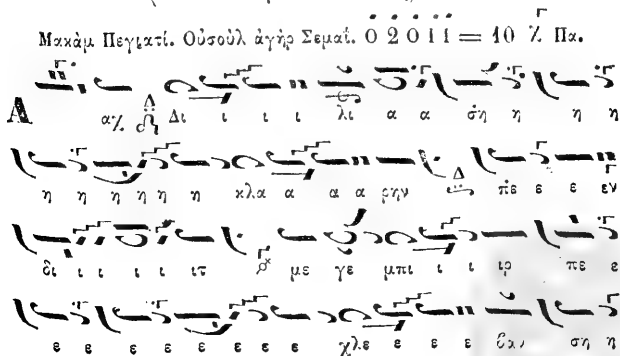 Μακὰμ Πεγιατί. Οὐσοὺλ ἀγὴρ Σεμαΐ. 0 2 0 1 1 = 10 Πα.
Α αχ Δι ι ι ι λι α α ση η η η
η η η η η η κλα α α α ρην πε ε ε εν
δι ι ι ι ι ιτ με γε μπι ι ι ιρ πε ε
ε ε ε ε ε ε ε ε χλε ε ε ε βαλ ση η